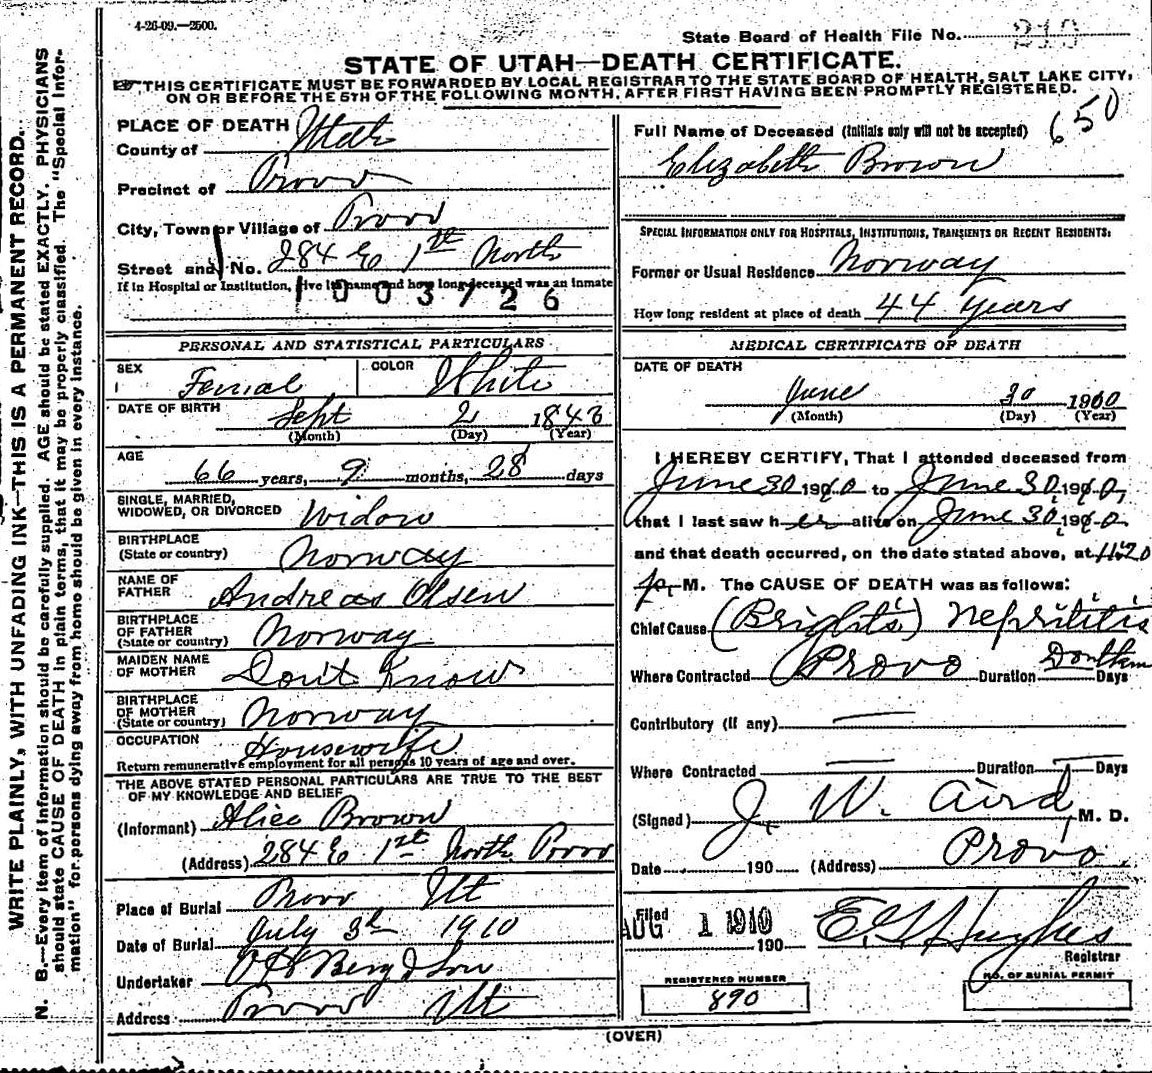 4-26-09.—2500.
State Board of Health File No. 213
STATE OF UTAH—DEATH CERTIFICATE.
THIS CERTIFICATE MUST BE FORWARDED BY LOCAL REGISTRAR TO THE STATE BOARD OF HEALTH, SALT LAKE CITY,
ON OR BEFORE THE 5TH OF THE FOLLOWING MONTH, AFTER FIRST HAVING BEEN PROMPTLY REGISTERED.
650
WRITE PLAINLY, WITH UNFADING INK—THIS IS A PERMANENT RECORD.
N. B.—Every item of information should be carefully supplied. AGE should be stated EXACTLY. PHYSICIANS
should state CAUSE OF DEATH in plain terms, that it may be properly classified. The "Special Infor-
mation" for persons dying away from home should be given in every instance.
PLACE OF DEATH
County of Utah
Precinct of Provo
City, Town or Village of Provo
Street and No. 284 E 1st North
If in Hospital or Institution, give its name and how long deceased was an inmate
1003726
PERSONAL AND STATISTICAL PARTICULARS
SEX Femal COLOR White
DATE OF BIRTH Sept 2 1843
(Month) (Day) (Year)
AGE 66 years, 9 months, 28 days
SINGLE, MARRIED,
WIDOWED, OR DIVORCED Widow
BIRTHPLACE
(State or country) Norway
NAME OF
FATHER Andreas Olsen
BIRTHPLACE
OF FATHER
(State or country) Norway
MAIDEN NAME
OF MOTHER Don't Know
BIRTHPLACE
OF MOTHER
(State or country) Norway
OCCUPATION Housewife
Return remunerative employment for all persons 10 years of age and over.
THE ABOVE STATED PERSONAL PARTICULARS ARE TRUE TO THE BEST
OF MY KNOWLEDGE AND BELIEF
(Informant) Alice Brown
(Address) 284 E 1st North Provo
Place of Burial Provo Ut
Date of Burial July 3d 1910
Undertaker O H Berg & Son
Address Provo Ut
Full Name of Deceased (Initials only will not be accepted)
Elizabeth Brown
SPECIAL INFORMATION ONLY FOR HOSPITALS, INSTITUTIONS, TRANSIENTS OR RECENT RESIDENTS:
Former or Usual Residence Norway
How long resident at place of death 44 years
MEDICAL CERTIFICATE OF DEATH
DATE OF DEATH
June 30 1910
(Month) (Day) (Year)
I HEREBY CERTIFY, That I attended deceased from
June 30 1910 to June 30, 1910,
that I last saw her alive on June 30, 1910
and that death occurred, on the date stated above, at 11:20
p. M. The CAUSE OF DEATH was as follows:
Chief Cause (Bright's) Nephritis
Where Contracted Provo Duration Don't know Days
Contributory (if any) —
Where Contracted — Duration — Days
(Signed) J. W. Aird, M. D.
Date 190 (Address) Provo.
Filed AUG 1 1910 190 E G Hughes
Registrar
REGISTERED NUMBER
890
NO. OF BURIAL PERMIT
(OVER)